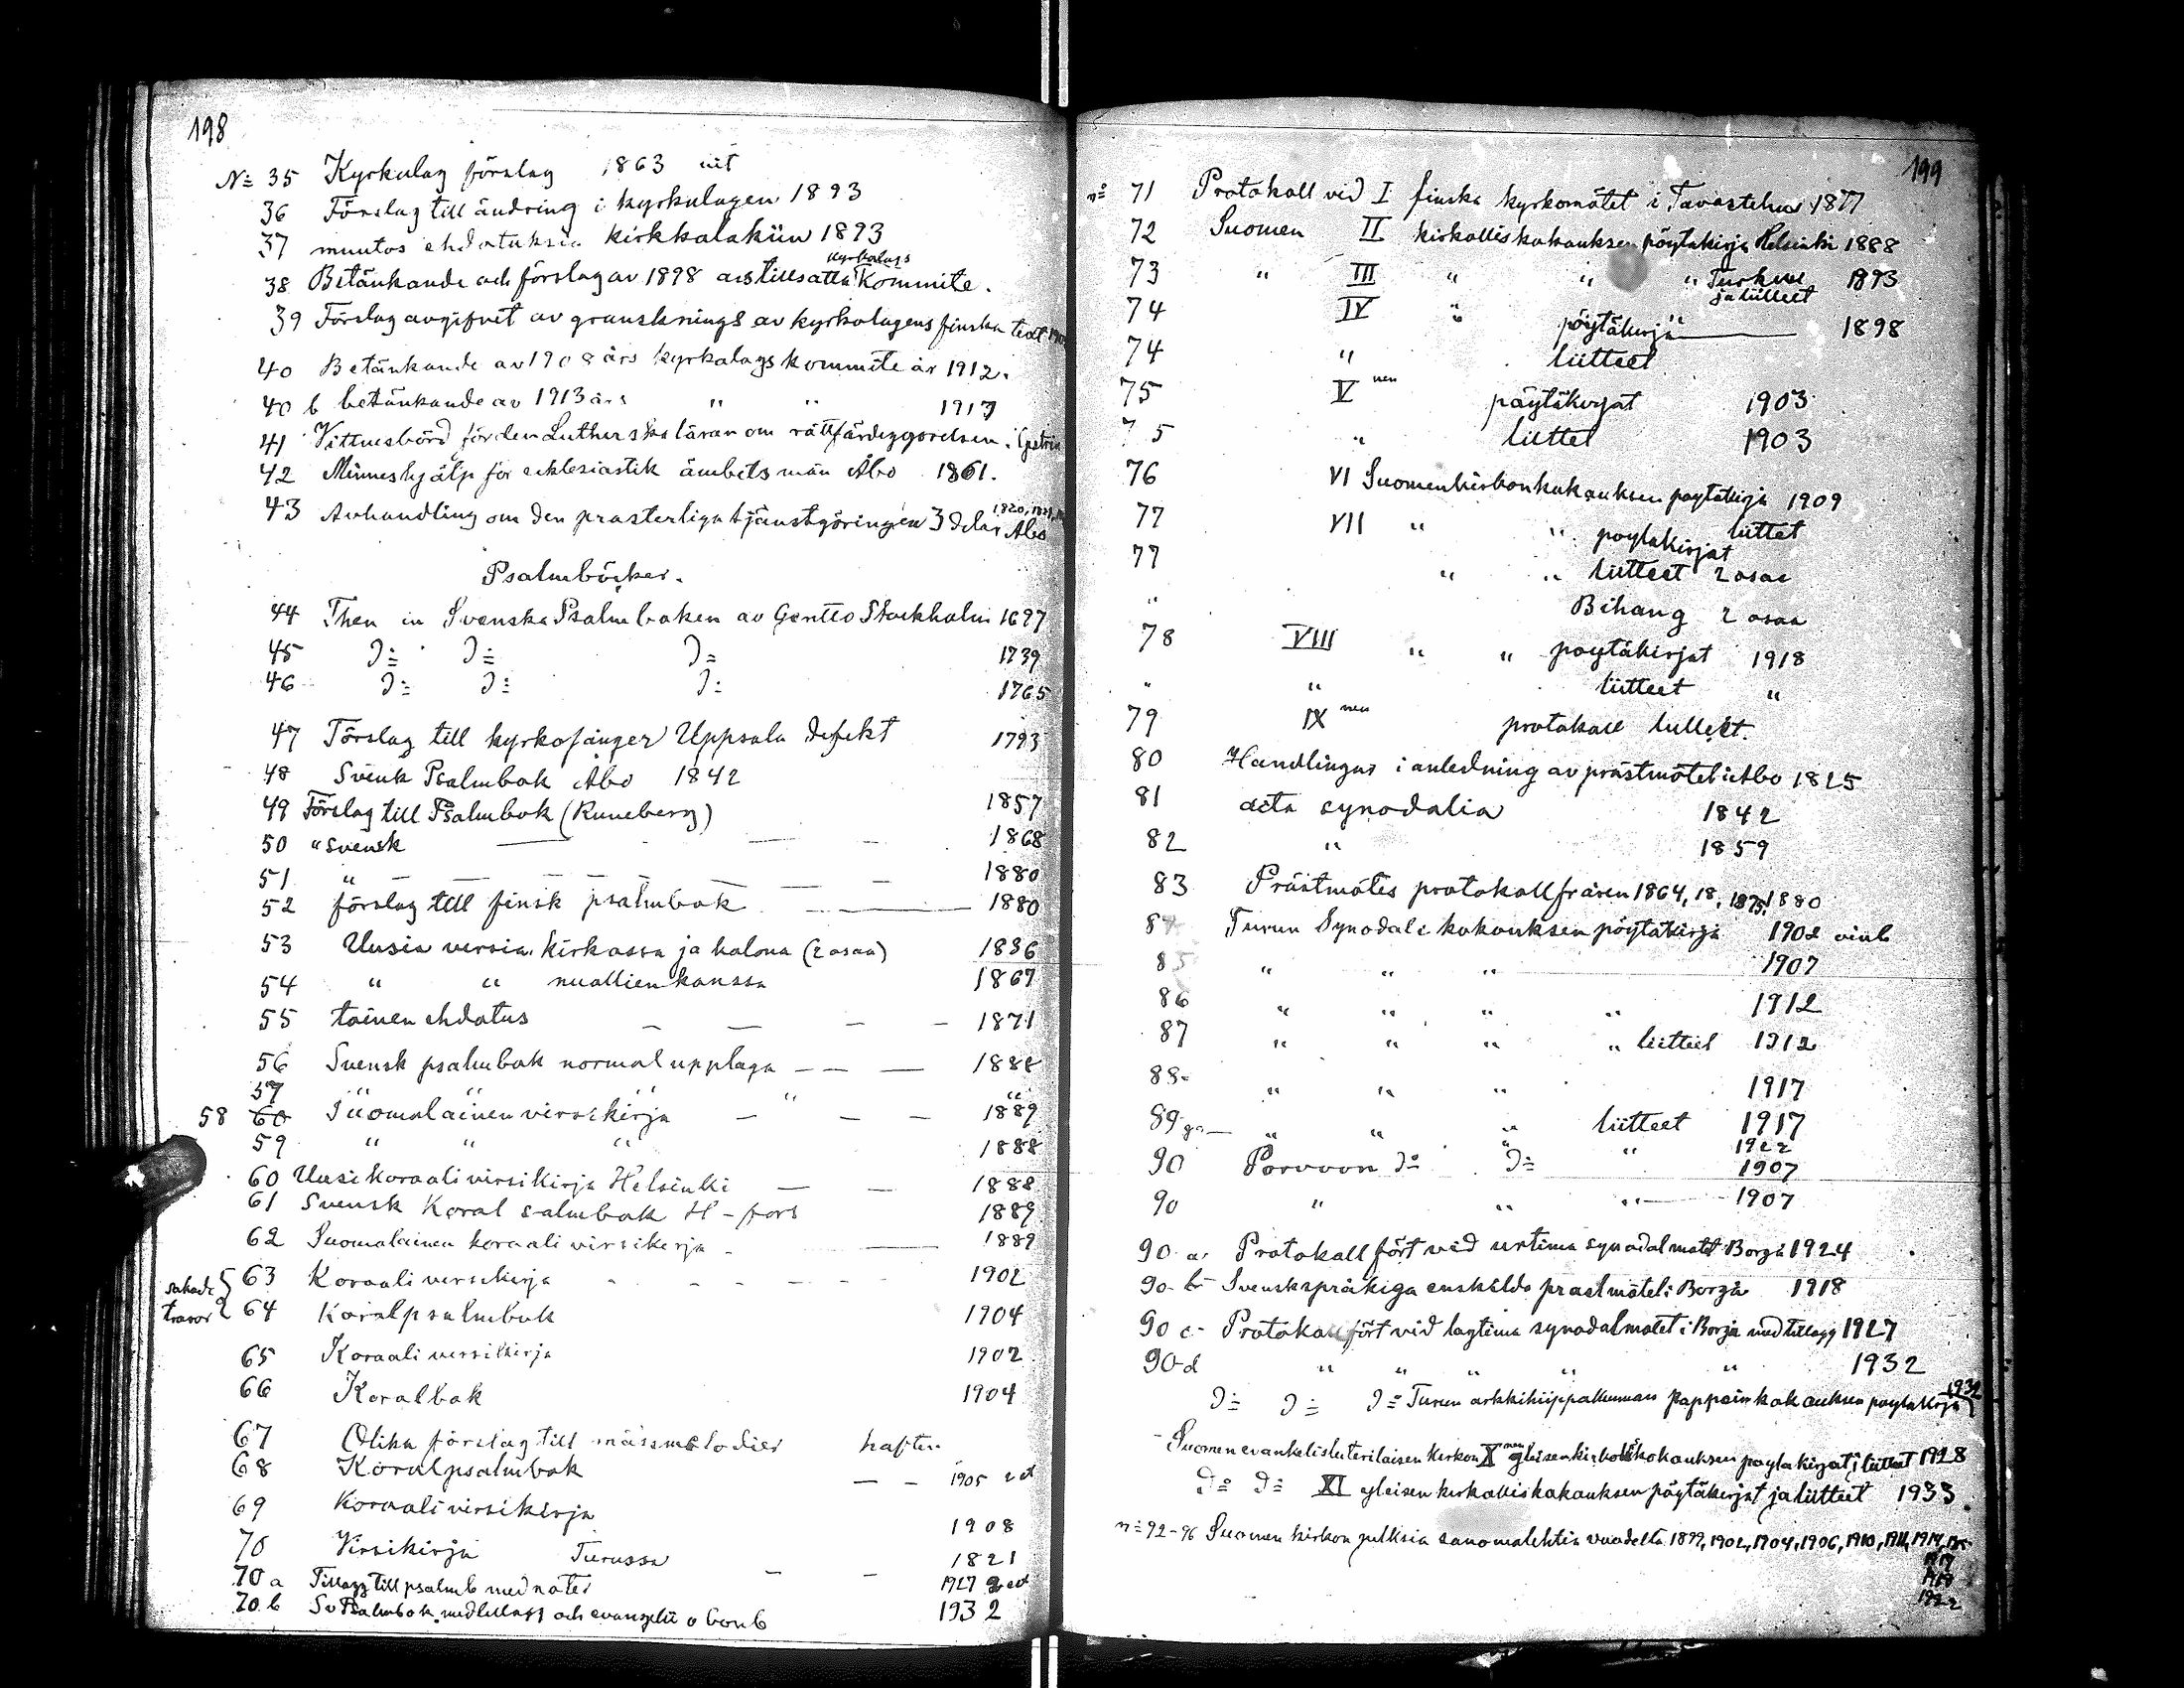 198
No 35 Kyrkulag förslag 1863 nit
36 Förslag till ändring i kyrkulagen 1893
37 muutos ehdotuksia kirkkolakiin 1893
38 Betänkande och förslag av 1898 års tillsatta kyrkolags kommite.
39 Förslag avgifvet av gransknings av kyrkolagens finska text
40 Betänkande av 1908 års kyrkolags kommite år 1912.
40 b betänkande av 1913 års " " 1917
41 Vittnesbörd för den Lutherska läran om rättfärdiggörelsen
42 Minneshjälp för ecklesiastik ämbetsmän Åbo 1861.
43 Avhandling om den prasterliga tjänstgöringen 3 delar Åbo
Psalmböcker.
44 Then Svenska Psalmboken av Stockholm 1697
45 D:= D:= D:= 1739
46 D:= D:= D:= 1765
47 Förslag till kyrkosånger Uppsala defekt 1793
48 Svensk Psalmbok Åbo 1842
49 Förslag till Psalmbok (Runeberg) 1857
50 " svensk — — — 1868
51 " — — — — — — — 1880
52 förslag till finsk psalmbok — 1880
53 Uusia versia kirkossa ja kotona (2 osaa) 1836
54 " " nuottien kanssa 1867
55 toinen ehdotus — — — — 1871
56 Svensk psalmbok normal upplaga — — — 1888
57 " " " " "
58 60 Suomalainen virsikirja — — — 1889
59 " " " 1888
60 Uusi koraalivirsikirja Helsinki — — 1888
61 Svensk Koral salmbok H-fors 1889
62 Suomalainen koraali virsikirja — 1889
63 Koraali versikirja 1902
64 Koralpsalmbok 1904
65 Koraali versikirja 1902
66 Koralbok 1904
67 Olika förslag till mässmelodier häften
68 Koralpsalmbok — — 1905
69 Koraalivirsikirja 1908
70 Virsikirja Turussa 1821
70 a Tillägg till psalmb med noter — — 1927
70 b Sv Psalmbok med tillägg och evangelii o bonb 1932
199
no 71 Protokoll vid I finska kyrkomötet i Tavastehus 1877
72 Suomen II kirkolliskokouksen pöytäkirja Helsinki 1888
73 " III " " " Turkuu 1893
ja liitteet
74 IV " pöytäkirja " — 1898
74 " liitteet
75 V nen pöytäkirjat 1903
75 " liittet 1903
76 VI Suomen kirkonkokouksen poytäkirja 1909
liittet
77 VII " " poytakirjat
77 " " liitteet 2 osaa
" Bihang 2 osaa
78 VIII " " poytäkirjat 1918
" " liitteet "
79 IX nen protokoll
80 Handlingar i anledning av prästmötet i Åbo 1825
81 acta synodalia 1842
82 " 1859
83 Prästmötes protokoll från 1864, 18, 1875, 1880
84 Turun Synodali kokouksen pöytäkirja 1902
85 " " " 1907
86 " " " " 1912
87 " " " " liitteet 1912
88 " " " 1917
89 " " " liitteet 1917
" " 1922
90 Porvoon D:o D:= 1907
90 " " " — 1907
90 a. Protokoll fört vid urtima synodalmötet Borgå 1924
90 b- Svenskspråkiga enskilda prastmötet i Borgå 1918
90 c- Protokoll fört vid lagtima synodalmötet i Borgå med tillägg 1927
90 d " " " " " 1932
D:= D:= D:= Turun arkkihiippakunnan Pappeinkokouksen poytakirja 1932
Suomen evankelisluterilaisen kirkon X nen yleisen kirkolliskokouksen poytakirjat, liitteet 1928
D:o D:= XI yleisen kirkolliskokouksen pöytäkirjat ja liitteet 1933.
n:= 92-96 Suomen kirkon julkisia sanomalehtia vuodelta 1899, 1902, 1904, 1906, 1910, 1911, 1914,
1922